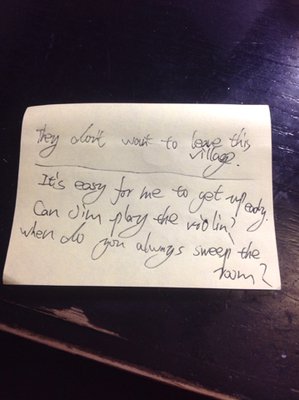 They don't want to leave this
village.
It's easy for me to get up early.
Can Jim play the violin?
when do you always sweep the
room?